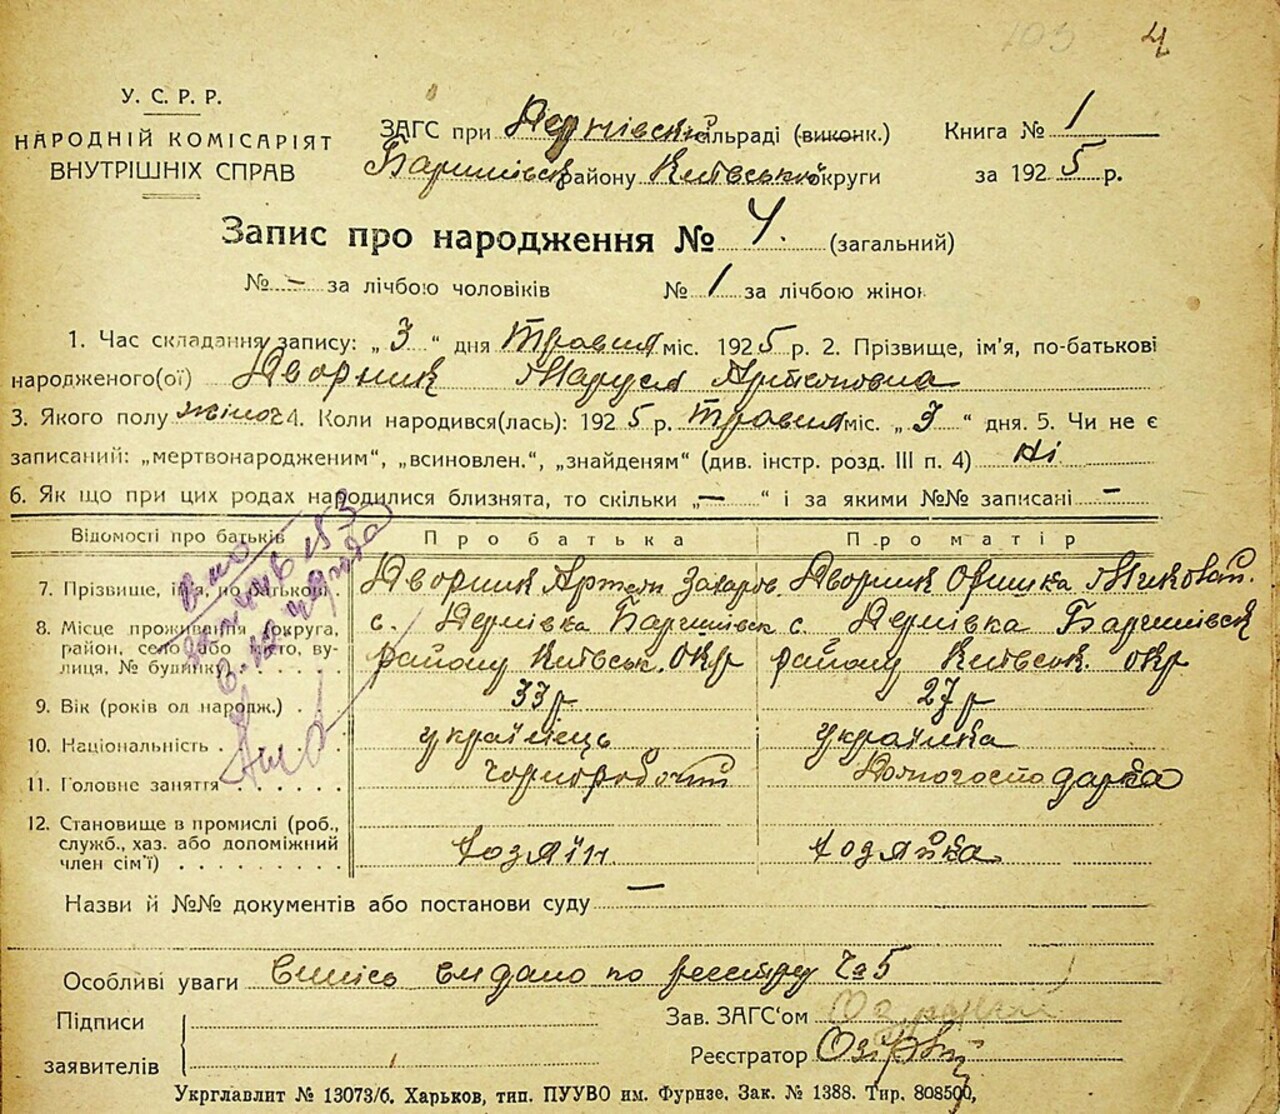 4
У. С. Р. Р.
НАРОДНІЙ КОМІСАРІЯТ
ВНУТРІШНІХ СПРАВ
ЗАГС при Дернівській сільраді (виконк.)
Баришівськ району Київської округи
Книга № 1
за 1925 р.
Запис про народження № 4. (загальний)
№ – за лічбою чоловіків № 1 за лічбою жінок
1. Час складання запису: „ 3 “ дня Травня міс. 1925 р. 2. Прізвище, ім’я, по-батькові
народженого(ої) Дворник Маруся Артемовна
3. Якого полу жіноч 4. Коли народився(лась): 1925 р. Травня міс. „ 3 “ дня. 5. Чи не є
записаний: „мертвонародженим“, „всиновлен.“, „знайденям“ (див. інстр. розд. III п. 4) Ні
6. Як що при цих родах народилися близнята, то скільки „ — “ і за якими №№ записані –
Відомості про батьків Про батька Про матір
7. Прізвище, ім’я, по батькові . Дворник Артем Захаров. Дворник Оришка Миколай.
8. Місце проживання (округа, район, село або місто, вулиця, № будинку) с. Дернівка Баришівск району Київськ. окр с. Дернівка Баришівск району Київськ. окр
9. Вік (років од народж.) . . 33 р 27 р
10. Національність . . . . . . українець українка
11. Головне заняття . . . . . . чорноробочий Домогосподарка
12. Становище в промислі (роб., служб., хаз. або допоміжний член сім’ї) . . . . . . . . хозяїн хозяйка
Назви й №№ документів або постанови суду —
Особливі уваги Випись видано по реєстру № 5
Підписи
заявителів
Зав. ЗАГС’ом
Реєстратор
Укрглавлит № 13073/б. Харьков, тип. ПУУВО им. Фурнзе. Зак. № 1388. Тир. 808500,